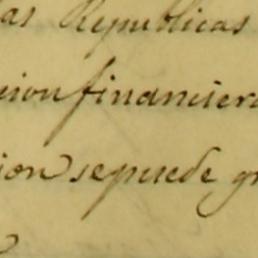 as Republicas
cion financiera
ion se puede gr